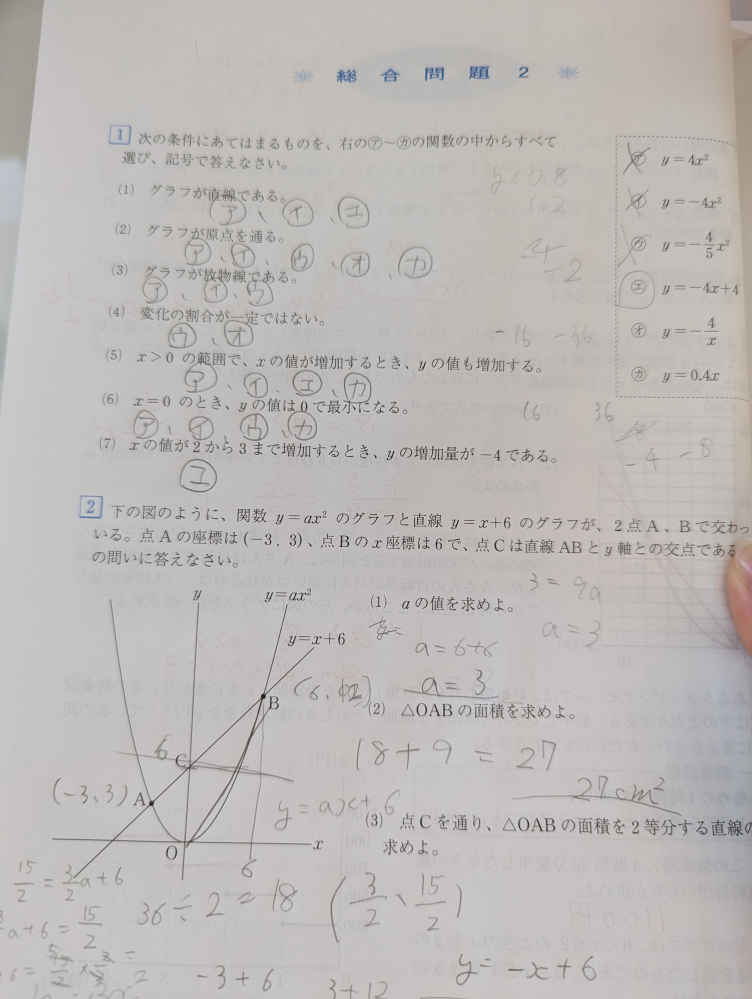 総合問題2
1 次の条件にあてはまるものを、右の㋐～㋕の関数の中からすべて
選び、記号で答えなさい。
(1) グラフが直線である。
㋐、㋑、㋓
(2) グラフが原点を通る。
㋐、㋑、㋒、㋔、㋕
(3) グラフが放物線である。
㋐、㋑、㋒
(4) 変化の割合が一定ではない。
㋒、㋔
(5) x>0 の範囲で、xの値が増加するとき、yの値も増加する。
㋐、㋑、㋓、㋕
(6) x=0 のとき、yの値は0で最小になる。
㋐、㋑、㋒、㋕
(7) xの値が2から3まで増加するとき、yの増加量が−4である。
㋓
㋐ y=4x²
㋑ y=−4x²
㋒ y=−4/5x²
㋓ y=−4x+4
㋔ y=−4/x
㋕ y=0.4x
-15 -36
16 36
-4 -8
2 下の図のように、関数 y=ax² のグラフと直線 y=x+6 のグラフが、2点A、Bで交わっ
いる。点Aの座標は(−3, 3)、点Bのx座標は6で、点Cは直線ABとy軸との交点である
の問いに答えなさい。
y
y=ax²
y=x+6
B
C
6
(-3、3)
A
O
x
6
y=ax+6
(1) aの値を求めよ。
3=9a
a=3
a=6+6
a=3
(2) △OABの面積を求めよ。
18+9=27
27cm²
(3) 点Cを通り、△OABの面積を2等分する直線の
求めよ。
15/2=3/2a+6
a+6=15/2
36÷2=18
(3/2、15/2)
-3+6
3+12
y=-x+6